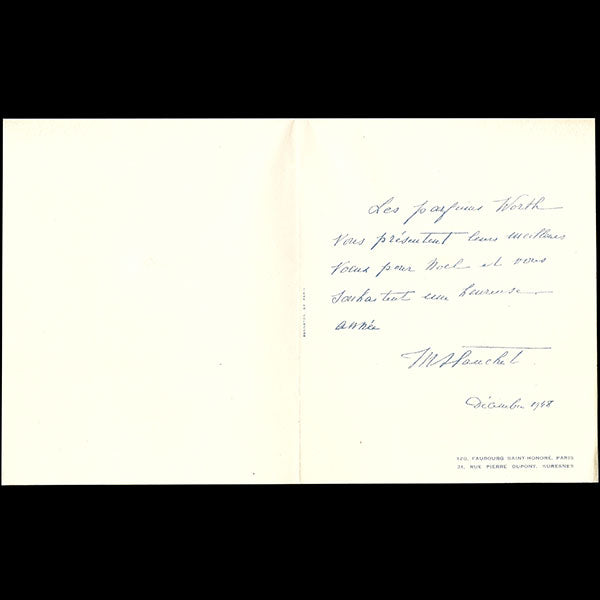 Les parfums Worth
Vous présentent leurs meilleurs
Voeux pour Noel et vous
souhaitent une heureuse
année
Décembre 1948
120, FAUBOURG SAINT-HONORÉ, PARIS
21, RUE PIERRE DUPONT, SURESNES